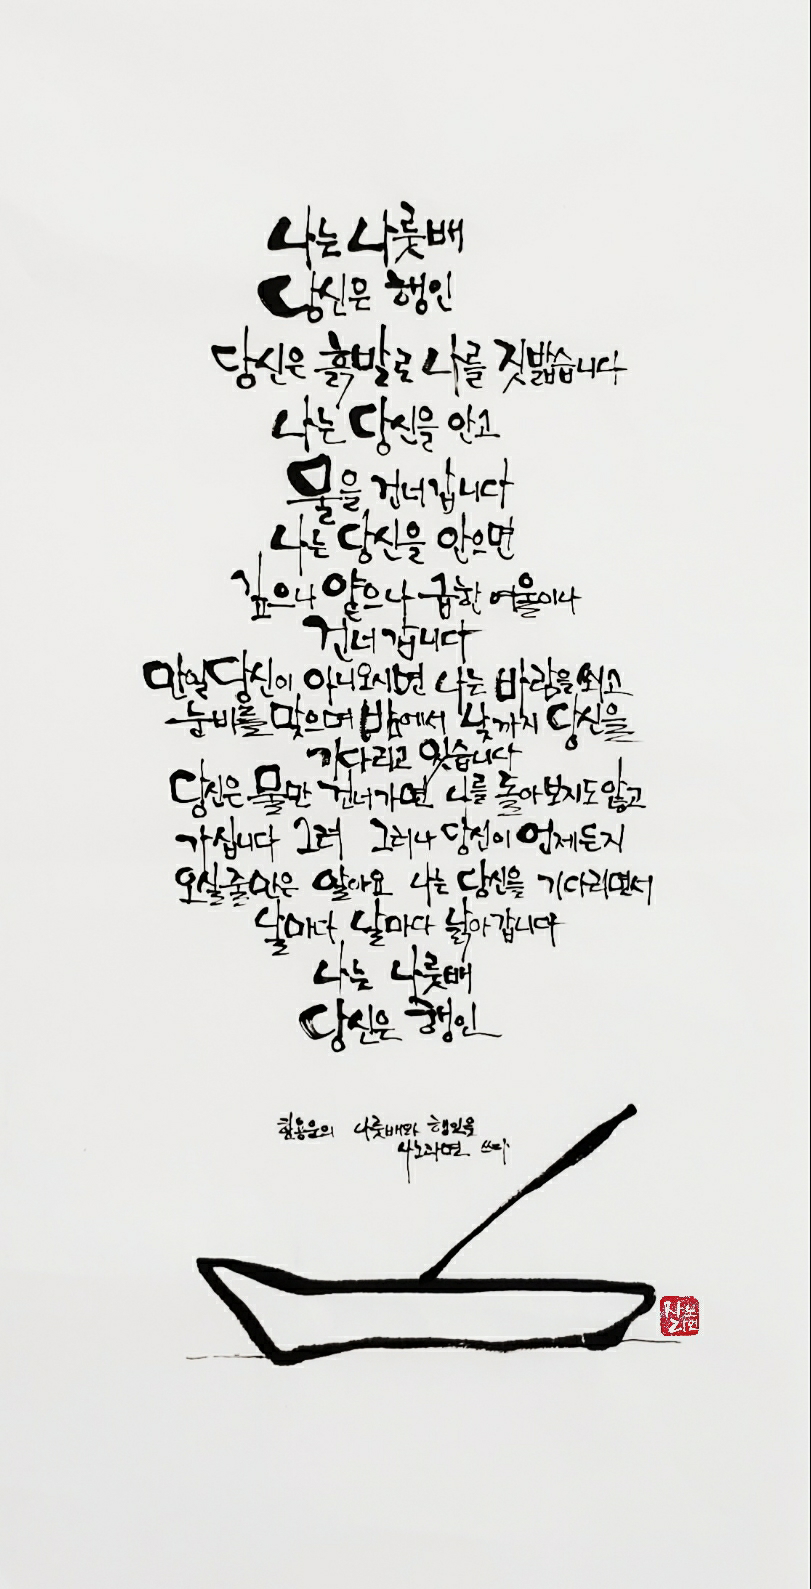 나는 나룻배
당신은 행인
당신은 흙발로 나를 짓밟습니다
나는 당신을 안고
물을 건너갑니다
나는 당신을 안으면
깊으나 얕으나 급한 여울이나
건너갑니다
만일 당신이 아니오시면 나는 바람을 쐬고
눈비를 맞으며 밤에서 낮까지 당신을
기다리고 있습니다
당신은 물만 건너가면 나를 돌아보지도 않고
가십니다 그려 그러나 당신이 언제든지
오실줄만은 알아요 나는 당신을 기다리면서
날마다 날마다 낡아갑니다
나는 나룻배
당신은 행인
한용운의 나룻배와 행인을
쓰다